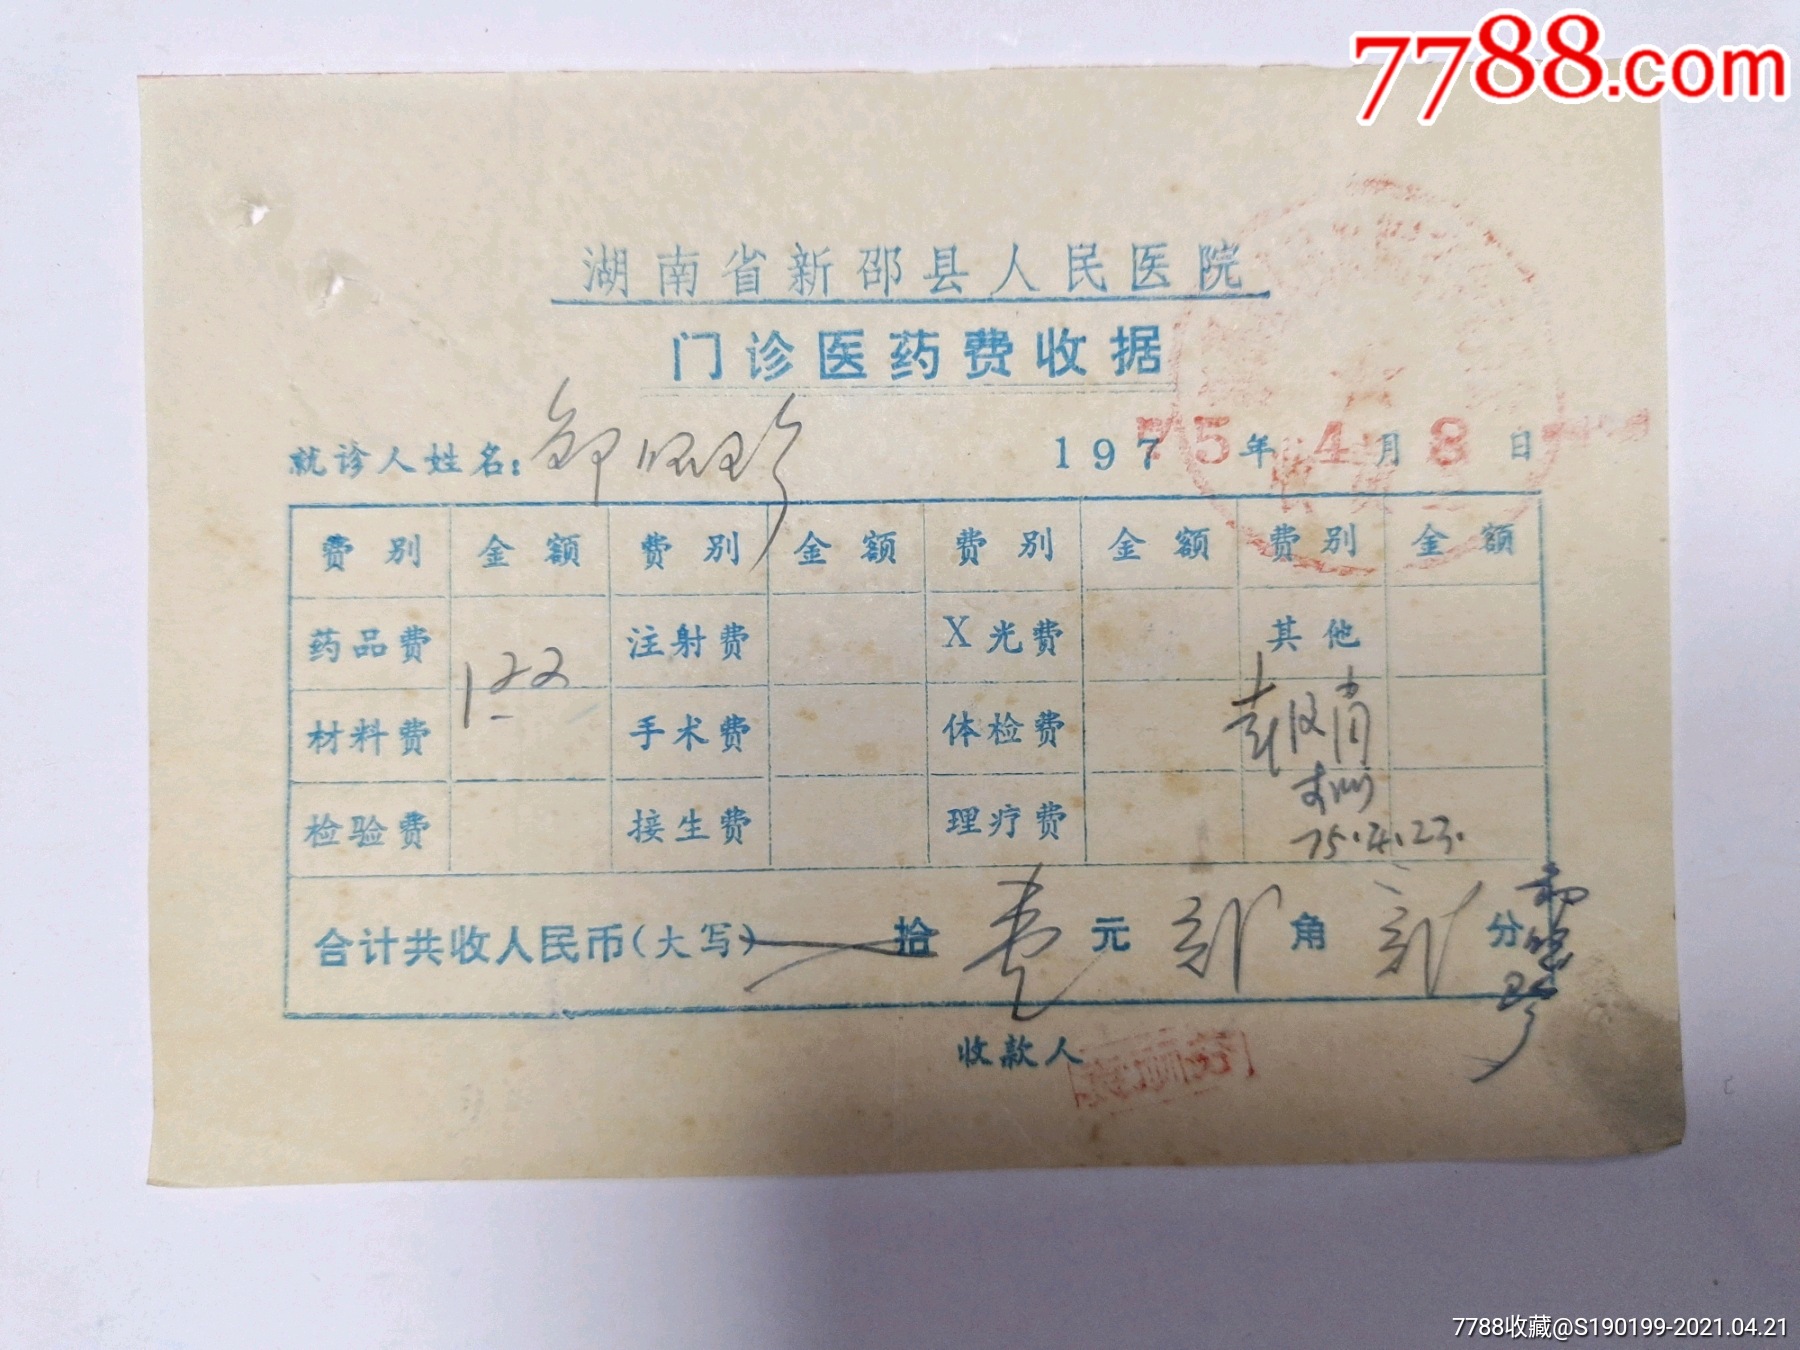 7788.com
湖南省新邵县人民医院
门诊医药费收据
就诊人姓名: 1975年4月8日
费别 金额 费别 金额 费别 金额 费别 金额
药品费 122 注射费 X光费 其他
材料费 手术费 体检费
检验费 接生费 理疗费
75.4.23.
合计共收人民币(大写) 拾 壹 元 贰 角 贰 分
收款人
7788收藏@S190199-2021.04.21